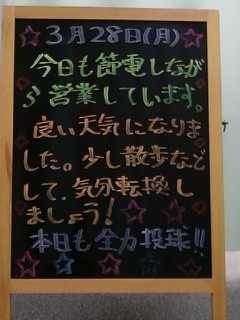 3月28日(月)
今日も節電しなが
ら営業しています。
良い天気になりま
した。少し散歩など
して、気分転換し
ましょう!
本日も全力投球!!